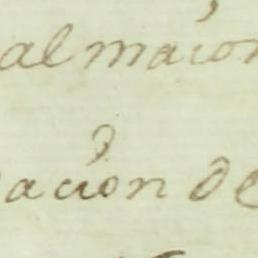 al maior
acion de